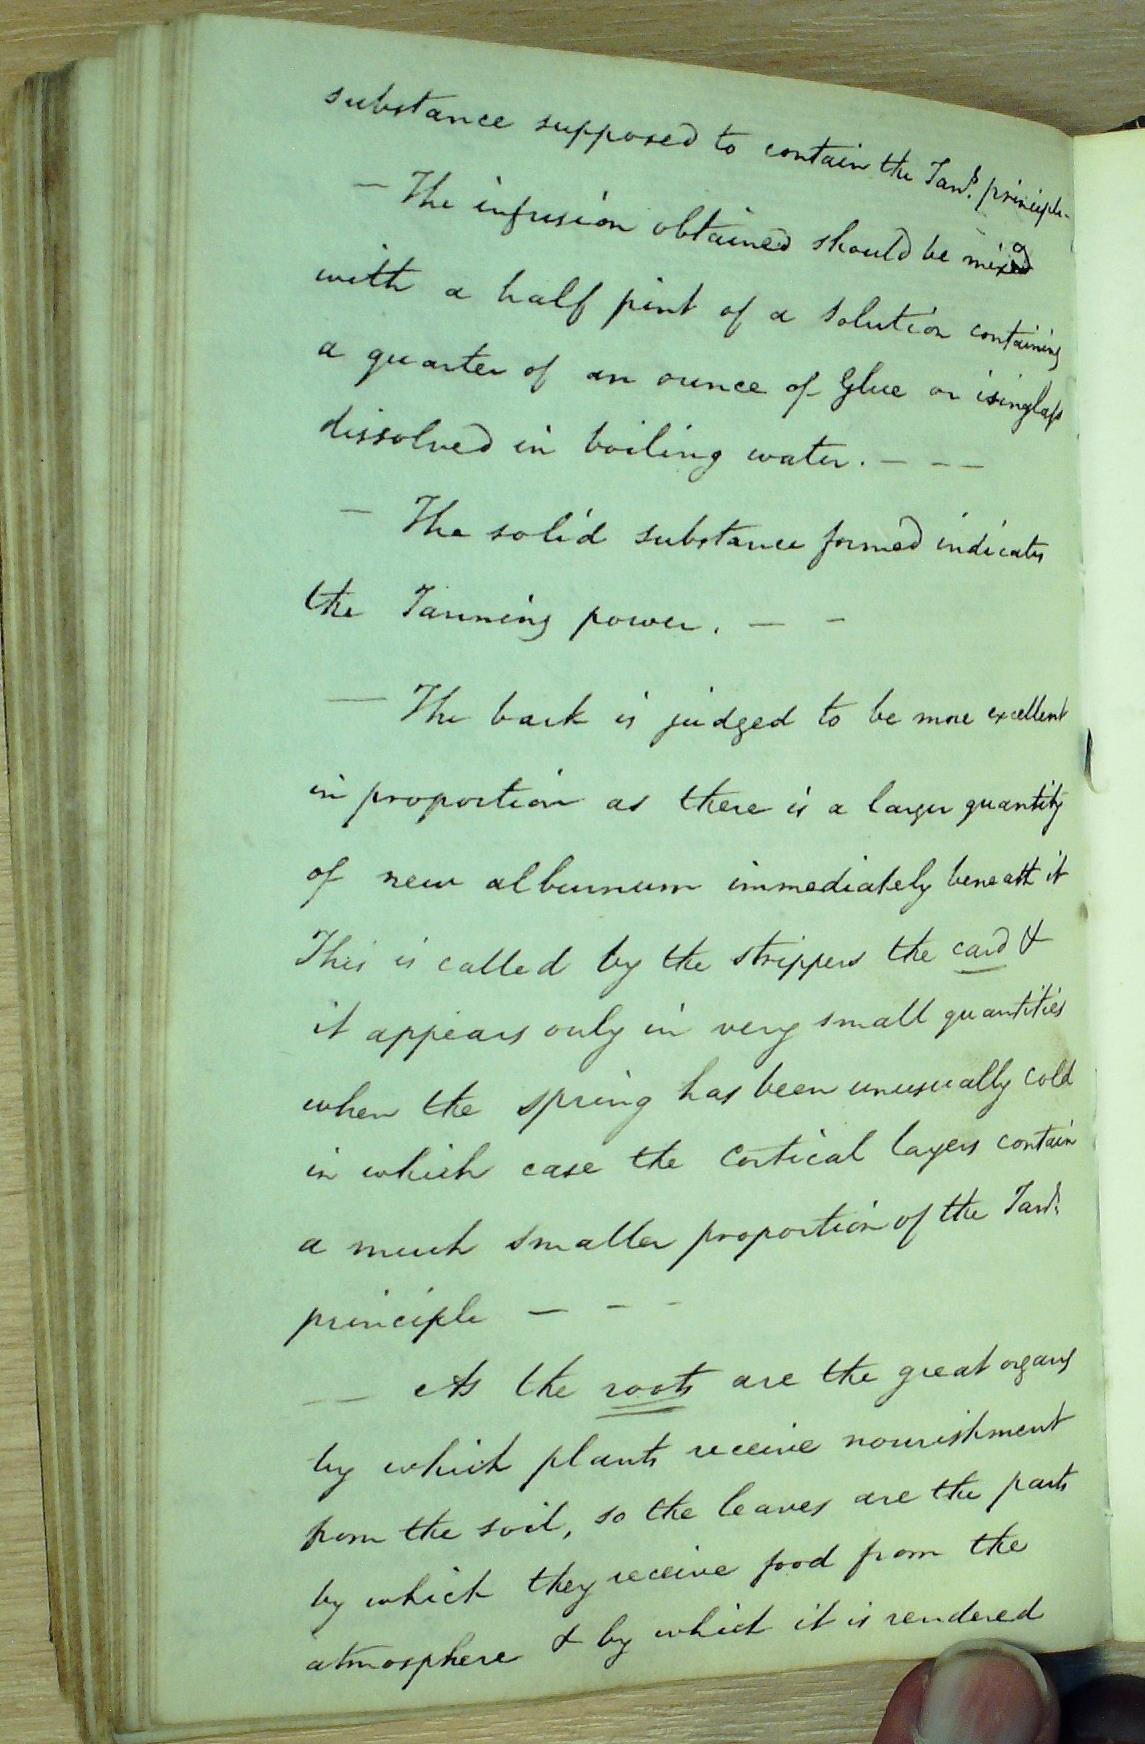 substance supposed to contain the Tang. principle -
— The infusion obtained should be mixed
with a half pint of a solution containing
a quarter of an ounce of Glue or isinglass
dissolved in boiling water. - - -
— The solid substance formed indicates
the Tanning power. - -
— The bark is judged to be more excellent
in proportion as there is a larger quantity
of new alburnum immediately beneath it
This is called by the strippers the card &
it appears only in very small quantities
when the spring has been unusually cold
in which case the Cortical layers contain
a much smaller proportion of the Tang.
principle - - -
— As the roots are the great organs
by which plants receive nourishment
from the soil, so the leaves are the parts
by which they receive food from the
atmosphere & by which it is rendered